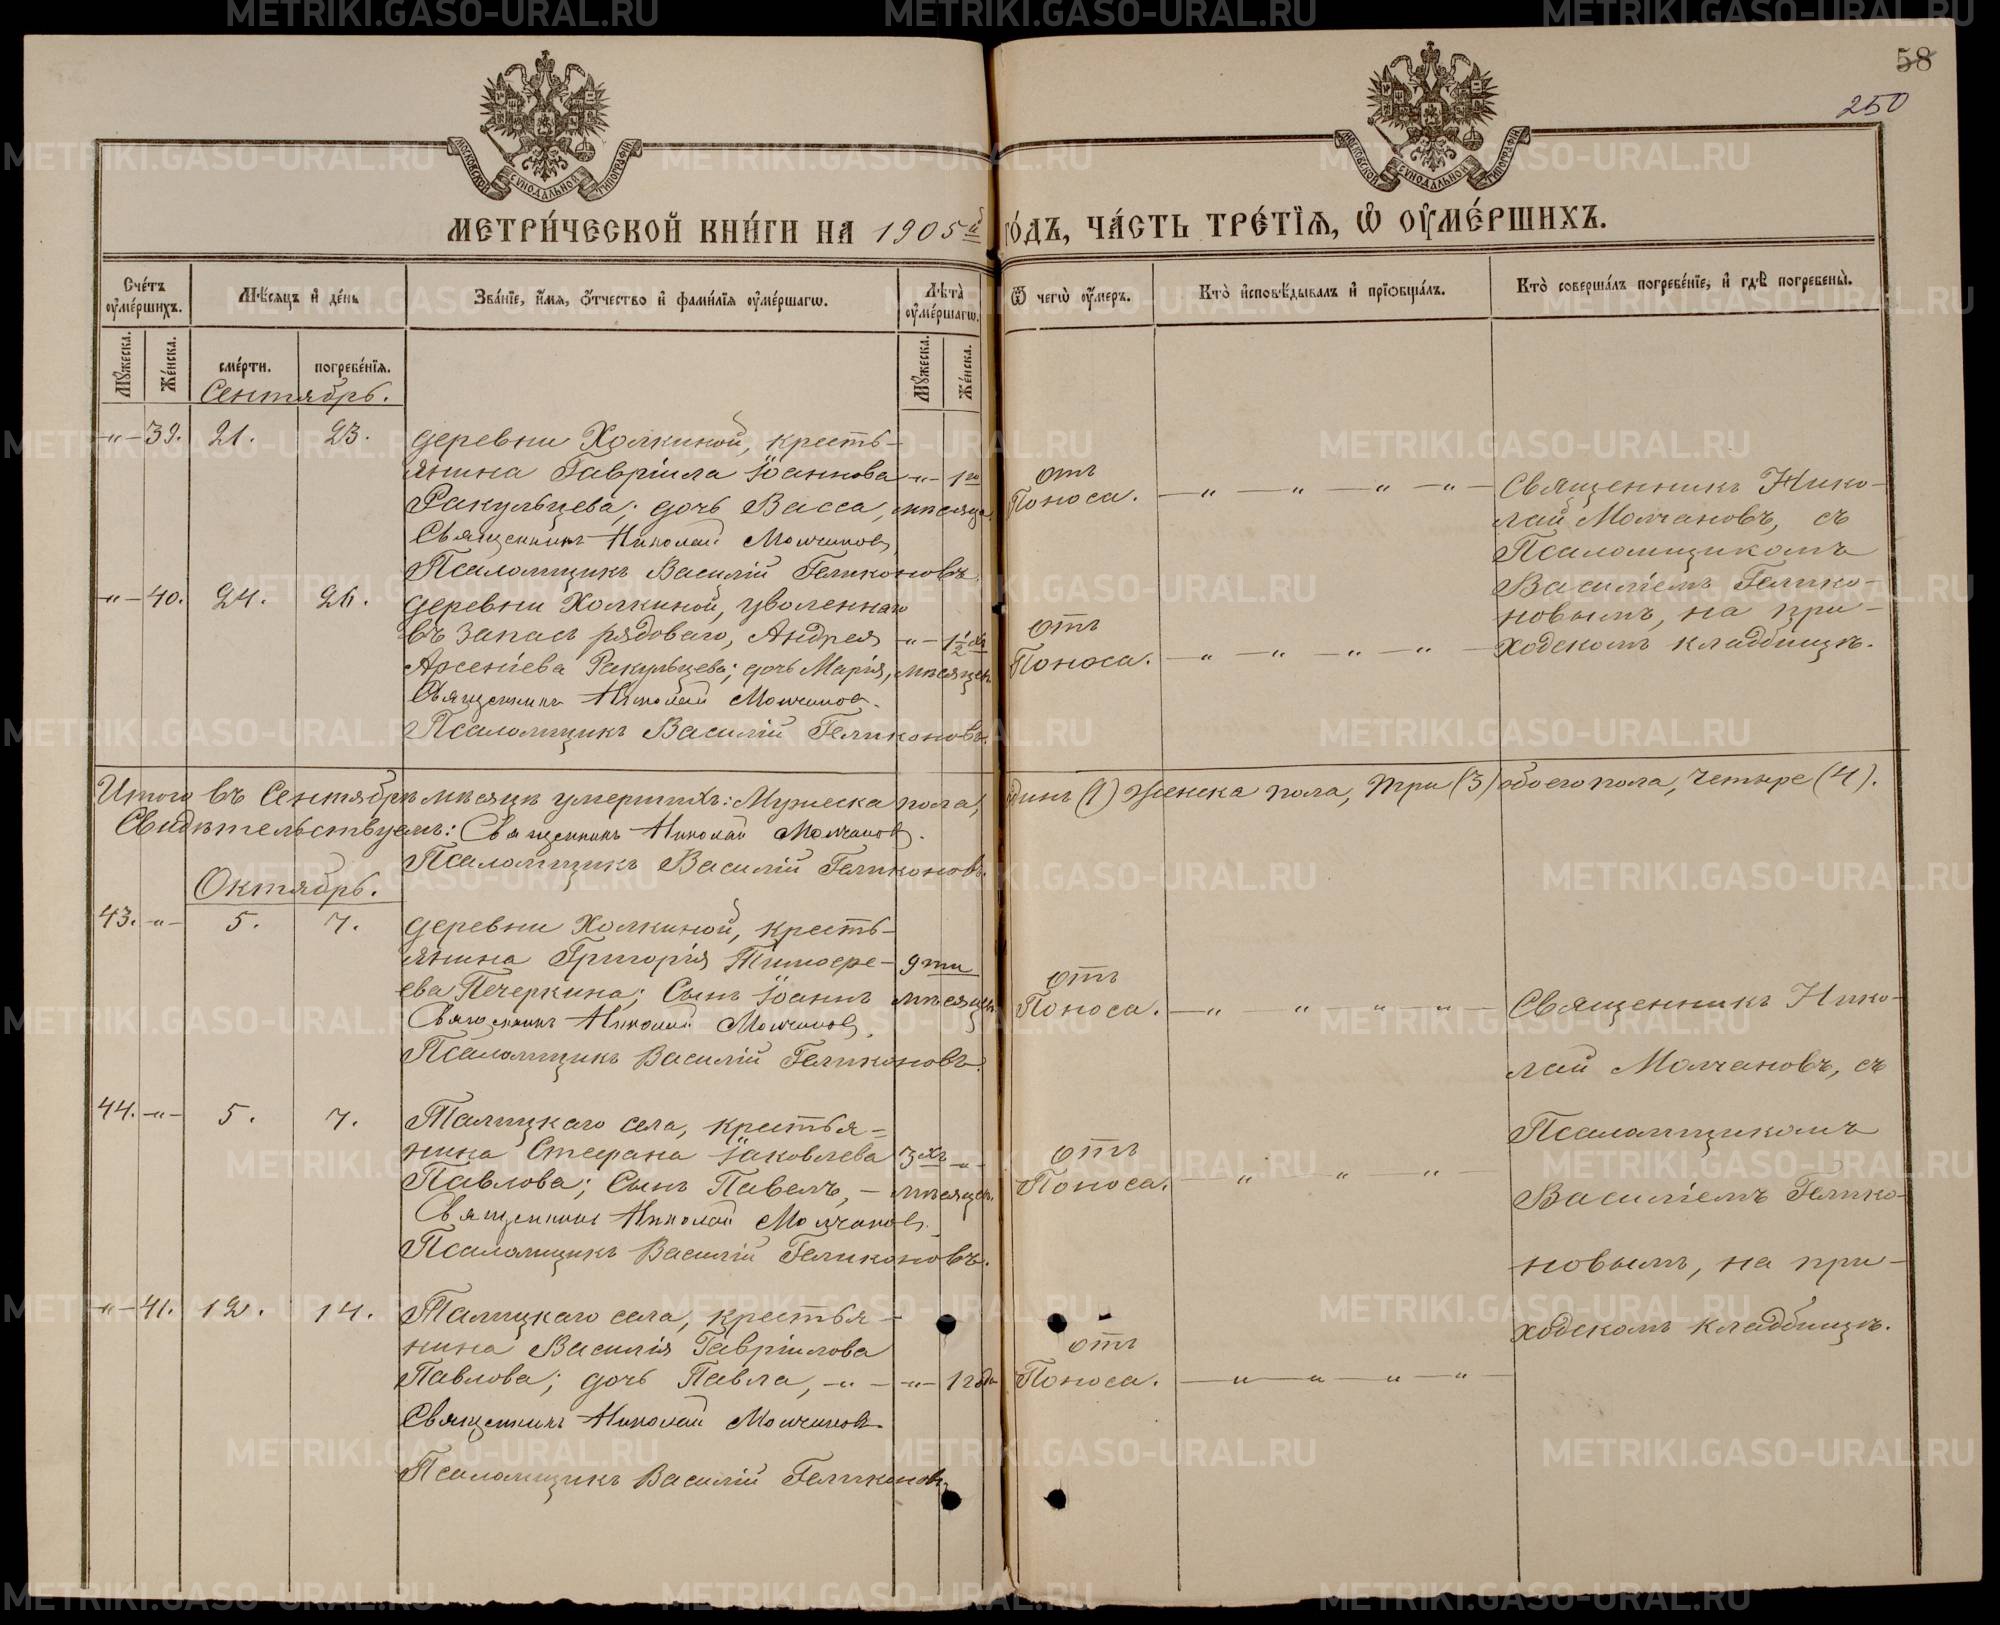 58
250
МОСКОВСКОЙ СѴНОДАЛЬНОЙ ТИПОГРАФІИ
МОСКОВСКОЙ СѴНОДАЛЬНОЙ ТИПОГРАФІИ
МЕТРИ́ЧЕСКОЙ КНИ́ГИ НА 1905й го́дъ, ЧА́СТЬ ТРЕ́ТІѦ, Ѽ ОУ҆МЕ́РШИХЪ.
Сче́тъ оу҆ме́ршихъ.
Мѣ́сяцъ и҆ де́нь
Зва́нїе, и҆́мѧ, ѻ҆́тчество и҆ фами́лїѧ оу҆ме́ршагѡ.
Лѣта̀ оу҆ме́ршагѡ.
Ѿ чегѡ̀ оу҆́меръ.
Кто̀ и҆сповѣ́дывалъ и҆ прїѡбща́лъ.
Кто̀ соверша́лъ погребе́нїе, и҆ гдѣ̀ погребены̀.
Му́жеска.
Же́нска.
сме́рти.
погребе́нїѧ.
Му́жеска.
Же́нска.
Сентябрь.
-"- 39. 21. 23. деревни Холкиной, кресть-
янина Гавріила Іоаннова -"- 1го
Ракульцева; дочь Васса, мѣсяца.
Священникъ Николай Молчановъ
Псаломщикъ Василій Геликоновъ.
отъ
Поноса. — " — " — " — " —
Священникъ Нико-
лай Молчановъ, съ
Псаломщикомъ
Василіемъ Гелико-
новымъ, на при-
ходскомъ кладбищѣ.
-"- 40. 24. 26. деревни Холкиной, уволеннаго
въ запасъ рядоваго, Андрея -"- 1½ хъ
Арсеніева Ракульцева; дочь Марія, мѣсяцевъ
Священникъ Николай Молчановъ.
Псаломщикъ Василій Геликоновъ.
отъ
Поноса. — " — " — " — " —
Итого въ Сентябрѣ мѣсяцѣ умершихъ: Мужеска пола, одинъ (1) Женска пола, три (3) обоего пола, четыре (4).
Свидѣтельствуемъ: Священникъ Николай Молчановъ.
Псаломщикъ Василій Геликоновъ.
Октябрь.
43. -"- 5. 7. деревни Холкиной, кресть-
янина Григорія Тимофе- 9ти
ева Печеркина; Сынъ Іоаннъ мѣсяцевъ
Священникъ Николай Молчановъ.
Псаломщикъ Василій Геликоновъ.
отъ
Поноса. — " — " — " — " —
Священникъ Нико-
лай Молчановъ, съ
Псаломщикомъ
Василіемъ Гелико-
новымъ, на при-
ходскомъ кладбищѣ.
44. -"- 5. 7. Талицкаго села, крестья-
нина Стефана Іаковлева 3хъ -"-
Павлова; Сынъ Павелъ, — мѣсяцевъ.
Священникъ Николай Молчановъ.
Псаломщикъ Василій Геликоновъ.
отъ
Поноса. — " — " — " —
-"- 41. 12. 14. Талицкаго села, крестья-
нина Василія Гавріилова
Павлова; дочь Павла, -"- -"- 1 года
Священникъ Николай Молчановъ
Псаломщикъ Василій Геликоновъ
отъ
Поноса. — " — " — " — " —
METRIKI.GASO-URAL.RU